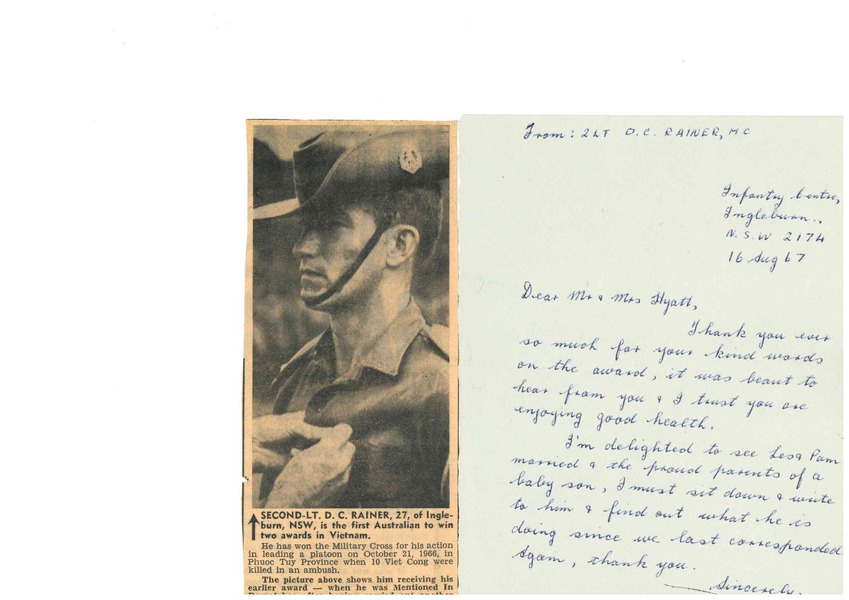 SECOND-LT. D. C. RAINER, 27, of Ingle-
burn, NSW, is the first Australian to win
two awards in Vietnam.
He has won the Military Cross for his action
in leading a platoon on October 21, 1966, in
Phuoc Tuy Province when 10 Viet Cong were
killed in an ambush.
The picture above shows him receiving his
earlier award — when he was Mentioned In
From: 2LT D.C. RAINER, MC
Infantry Centre,
Ingleburn..
N.S.W 2174
16 Aug 67
Dear Mr & Mrs Hyatt,
Thank you ever
so much for your kind words
on the award, it was beaut to
hear from you & I trust you are
enjoying good health.
I'm delighted to see Les & Pam
married & the proud parents of a
baby son, I must sit down & write
to him & find out what he is
doing since we last corresponded
Again, thank you.
Sincerely,